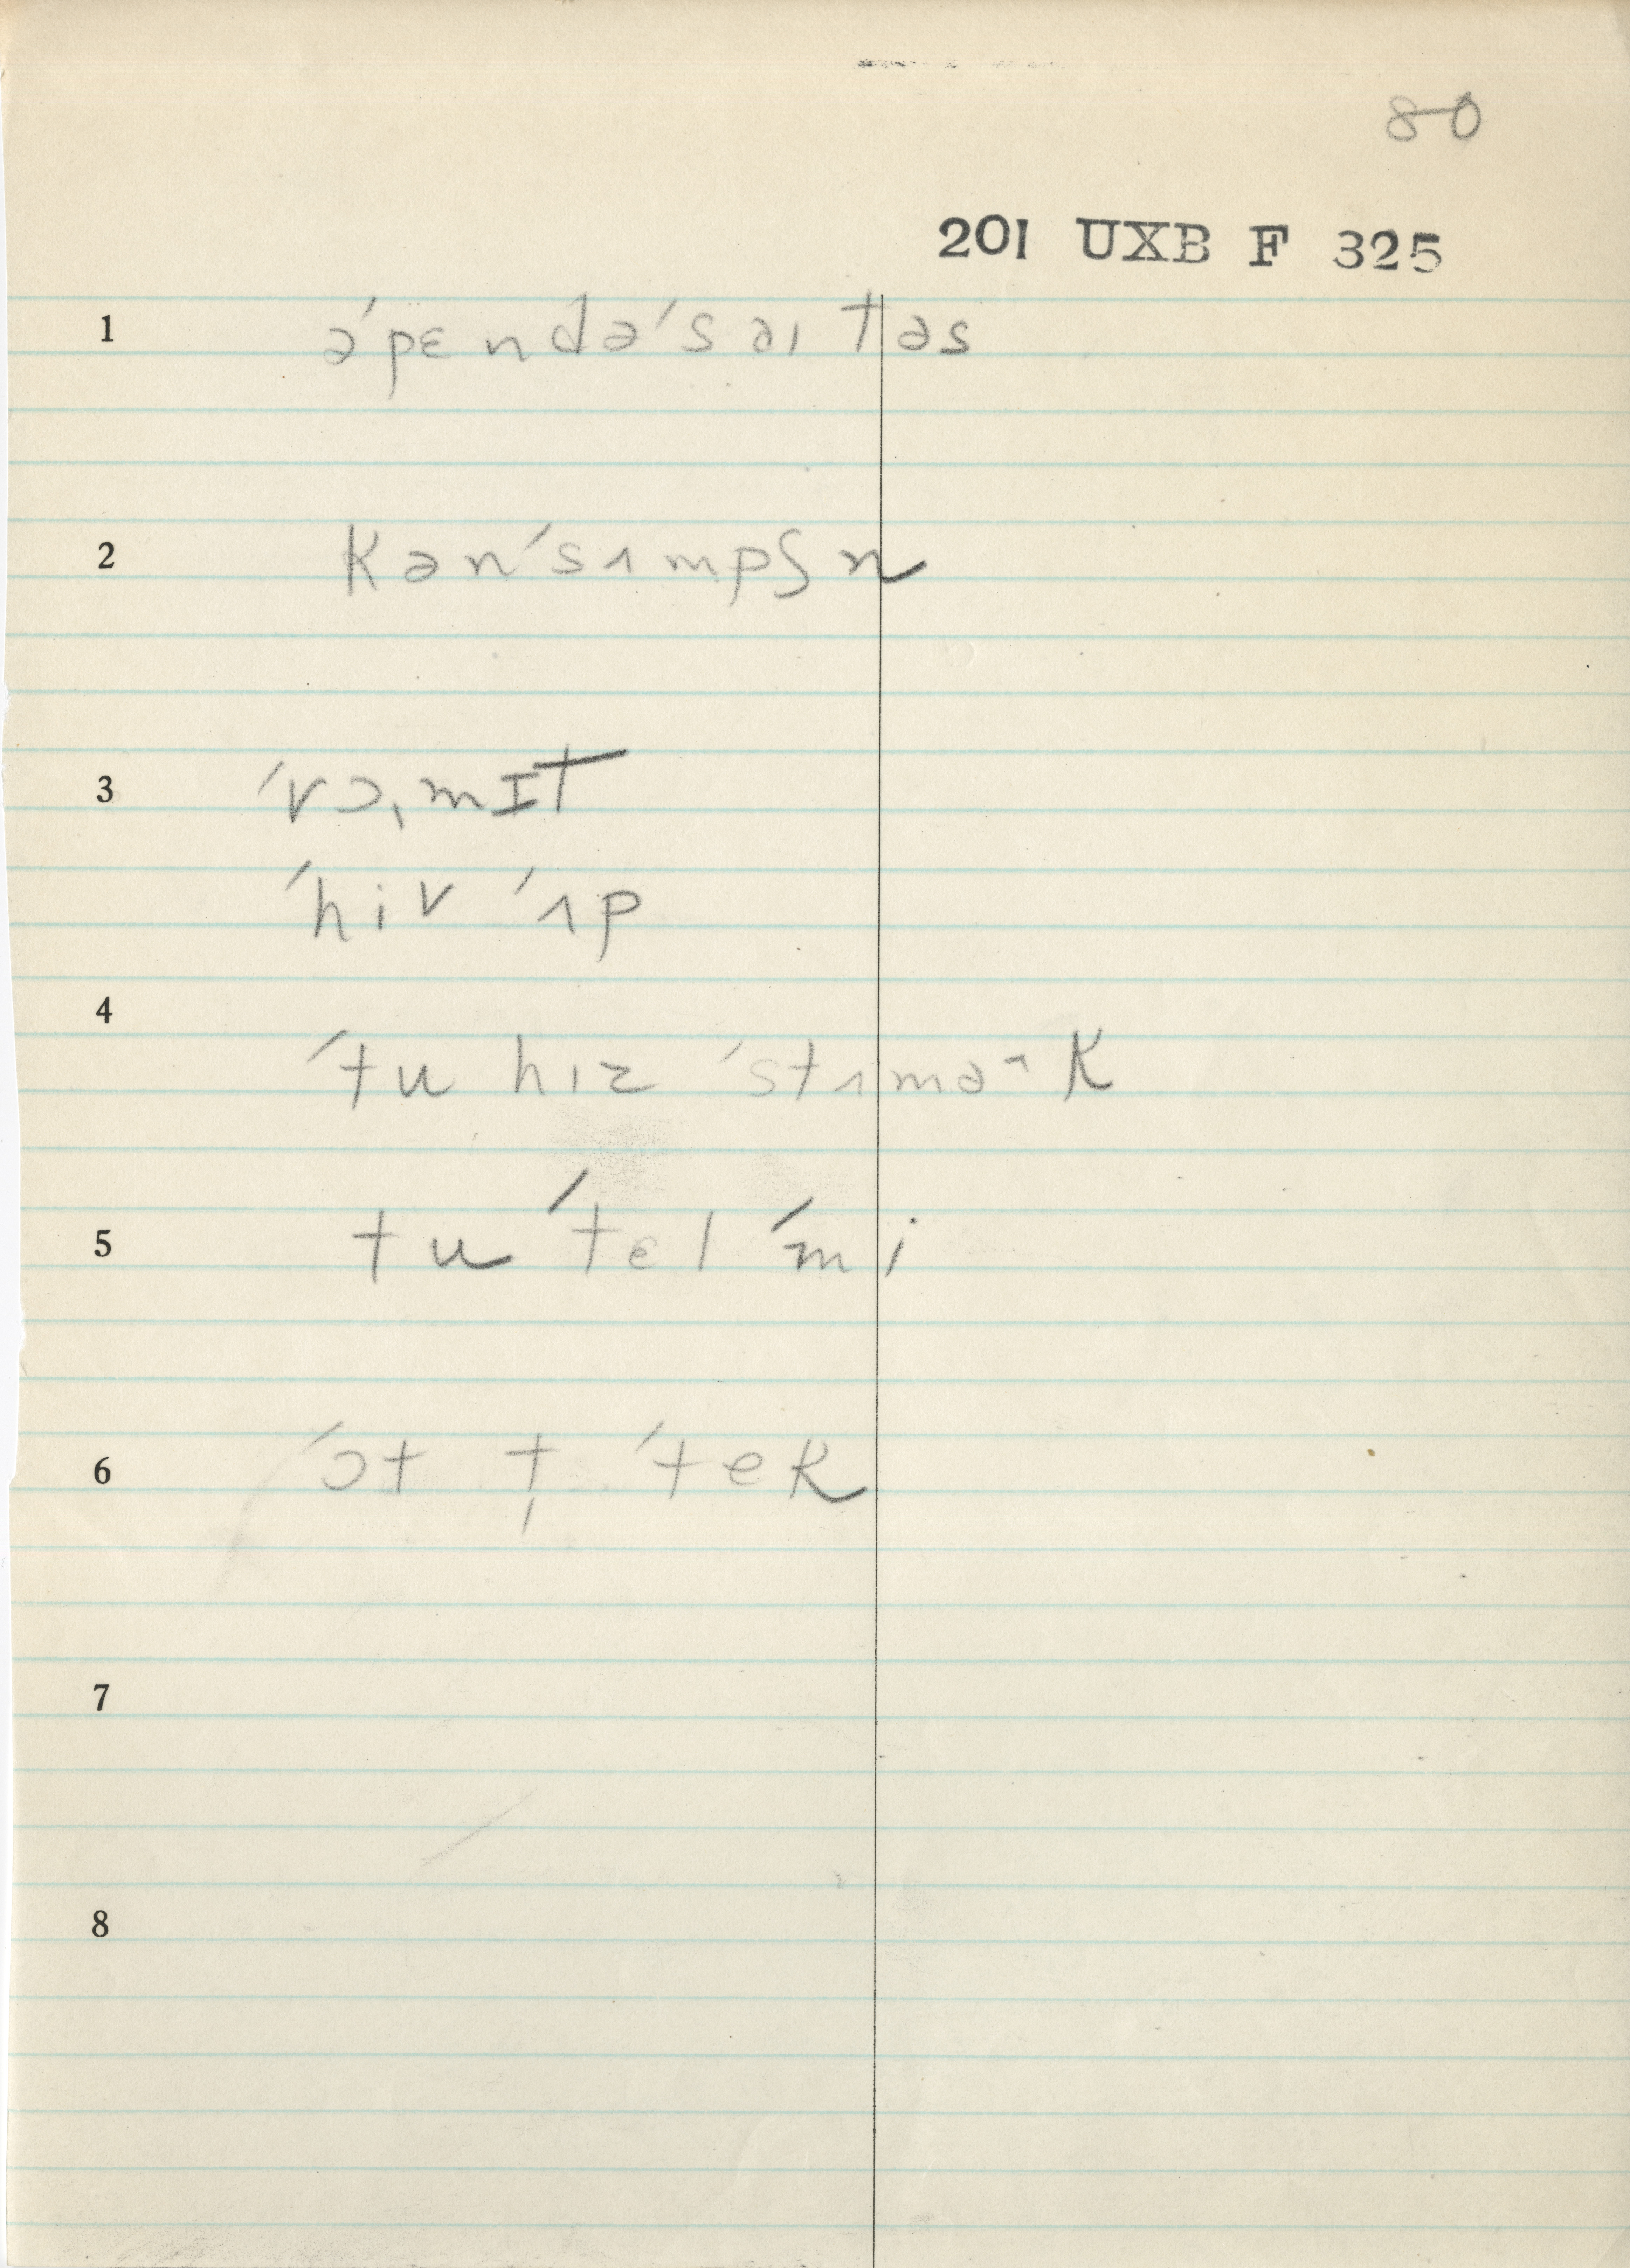 80
201 UXB F 325
1 əˊpɛndəˊsaɪtəs
2 kənˊsʌmpʃn
3 ˊvɔˌmɪt
ˊhiv ˊʌp
4
ˊtu hɪz ˊstʌməˆk
5 tu ˊtɛl ˊmi
6 ˊɔt t̩ ˊtek
7
8